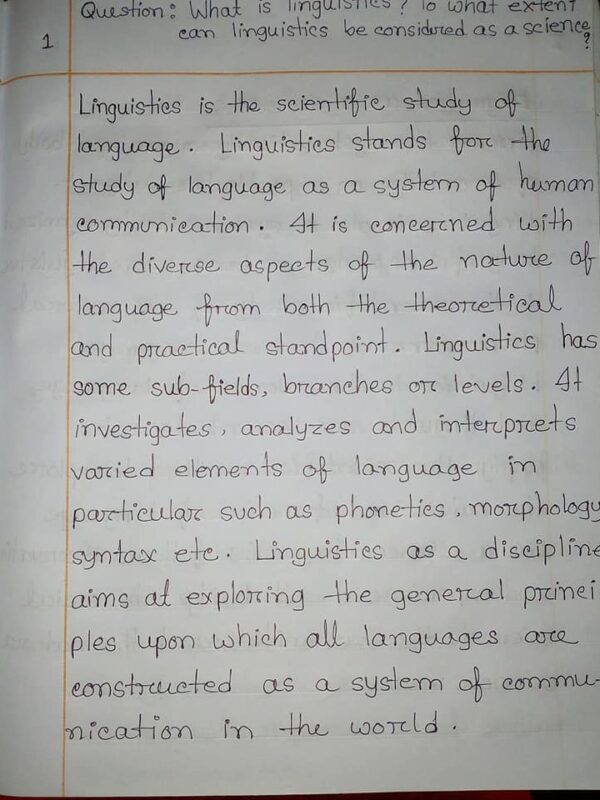 Question: What is linguistics? To what extent
1
can linguistics be considered as a science?
Linguistics is the scientific study of
language. Linguistics stands for the
study of language as a system of human
communication. It is concerned with
the diverse aspects of the nature of
language from both the theoretical
and practical standpoint. Linguistics has
some sub-fields, branches or levels. It
investigates, analyzes and interprets
varied elements of language in
particular such as phonetics, morphology
syntax etc. Linguistics as a discipline
aims at exploring the general princi
ples upon which all languages are
constructed as a system of commu-
nication in the world.